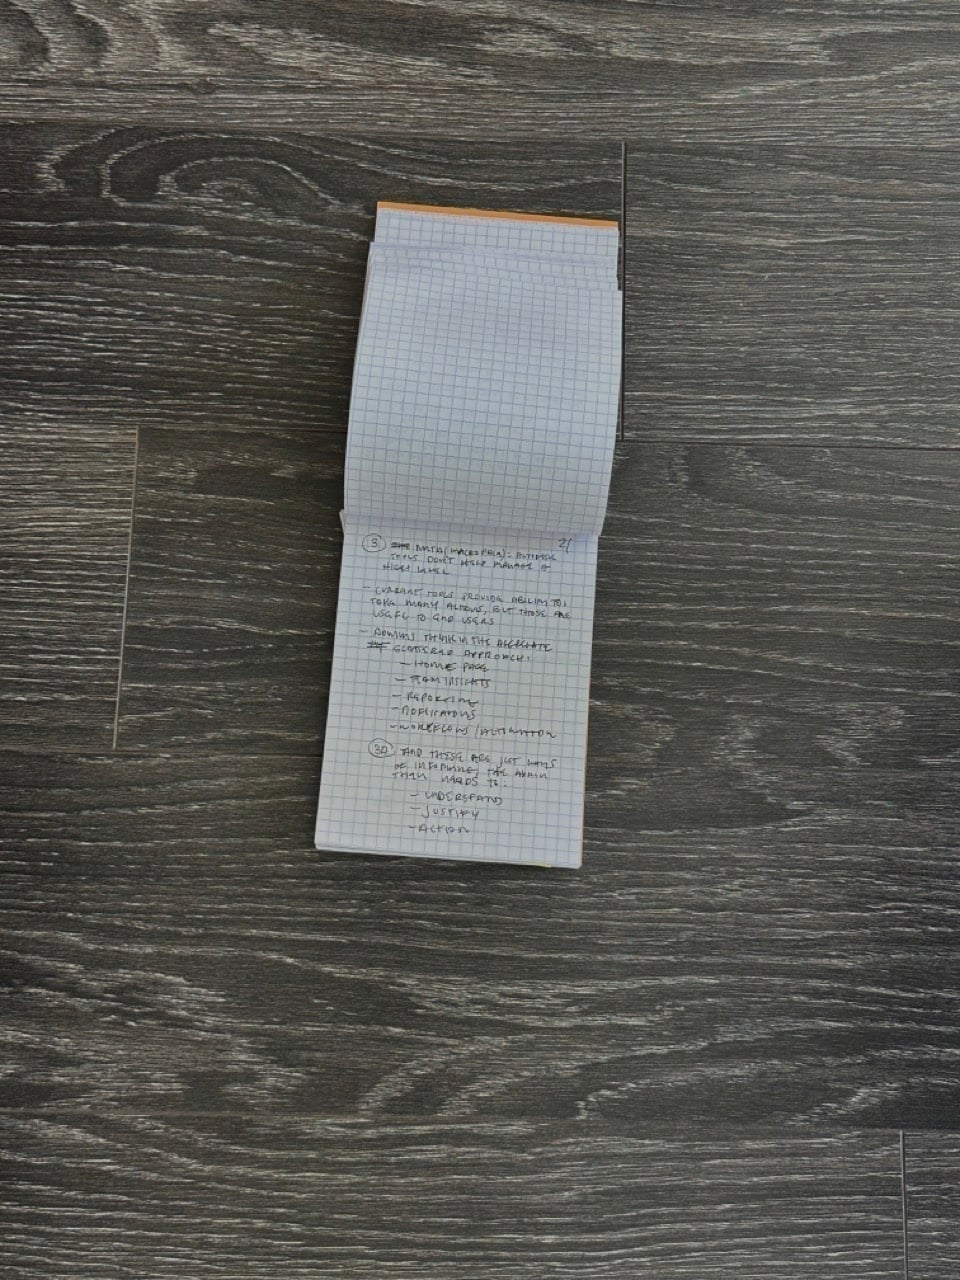 2/
③ DATA (MACRO DATA): 
TOOLS DON'T HELP MANAGE @
HIGH LEVEL
- CURRENT TOOLS PROVIDE ABILITY TO
TAKE MANY ACTIONS, BUT THOSE ARE
USEFUL TO END USERS
- ADMINS THINK IN THE AGGREGATE
SCATTERED APPROACH:
- HOME PAGE
- TEAM INSIGHTS
- REPORTING
- NOTIFICATIONS
- WORKFLOWS / AUTOMATION
3A AND THESE ARE JUST WAYS
OF INFORMING, THE ADMIN
THEN NEEDS TO:
- UNDERSTAND
- JUSTIFY
- ACTION